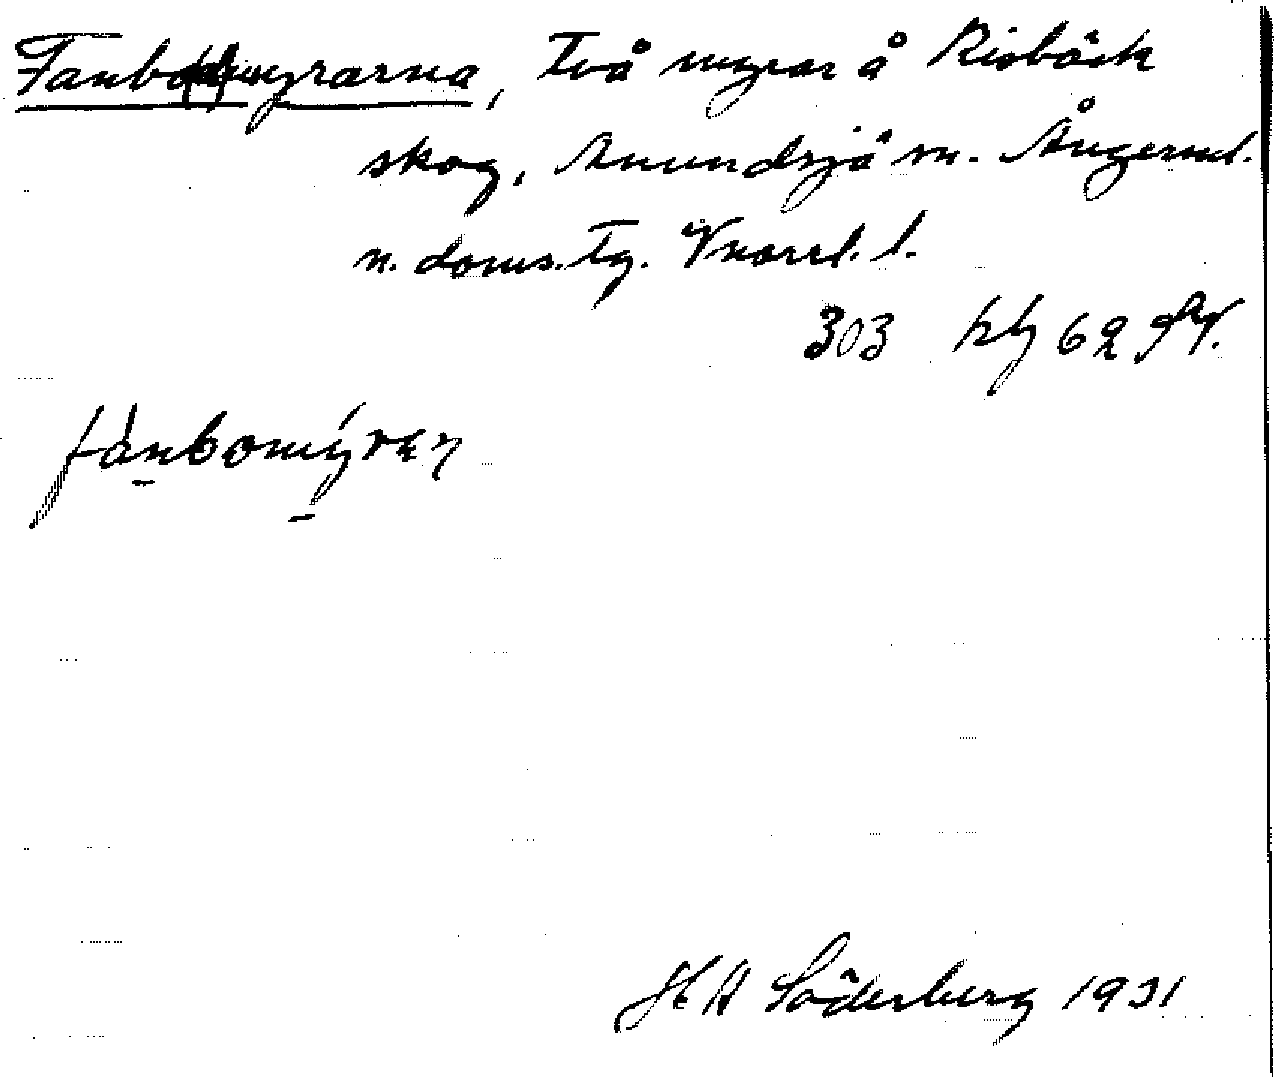 Fanbomyrarna, Två myrar å Risbäck
skog, Anundsjö sn. Ångerml.
n. doms. tg. Vnorrl. l.
303 kbl 62 SV.
fànbomýrαn
H A Söderberg 1931